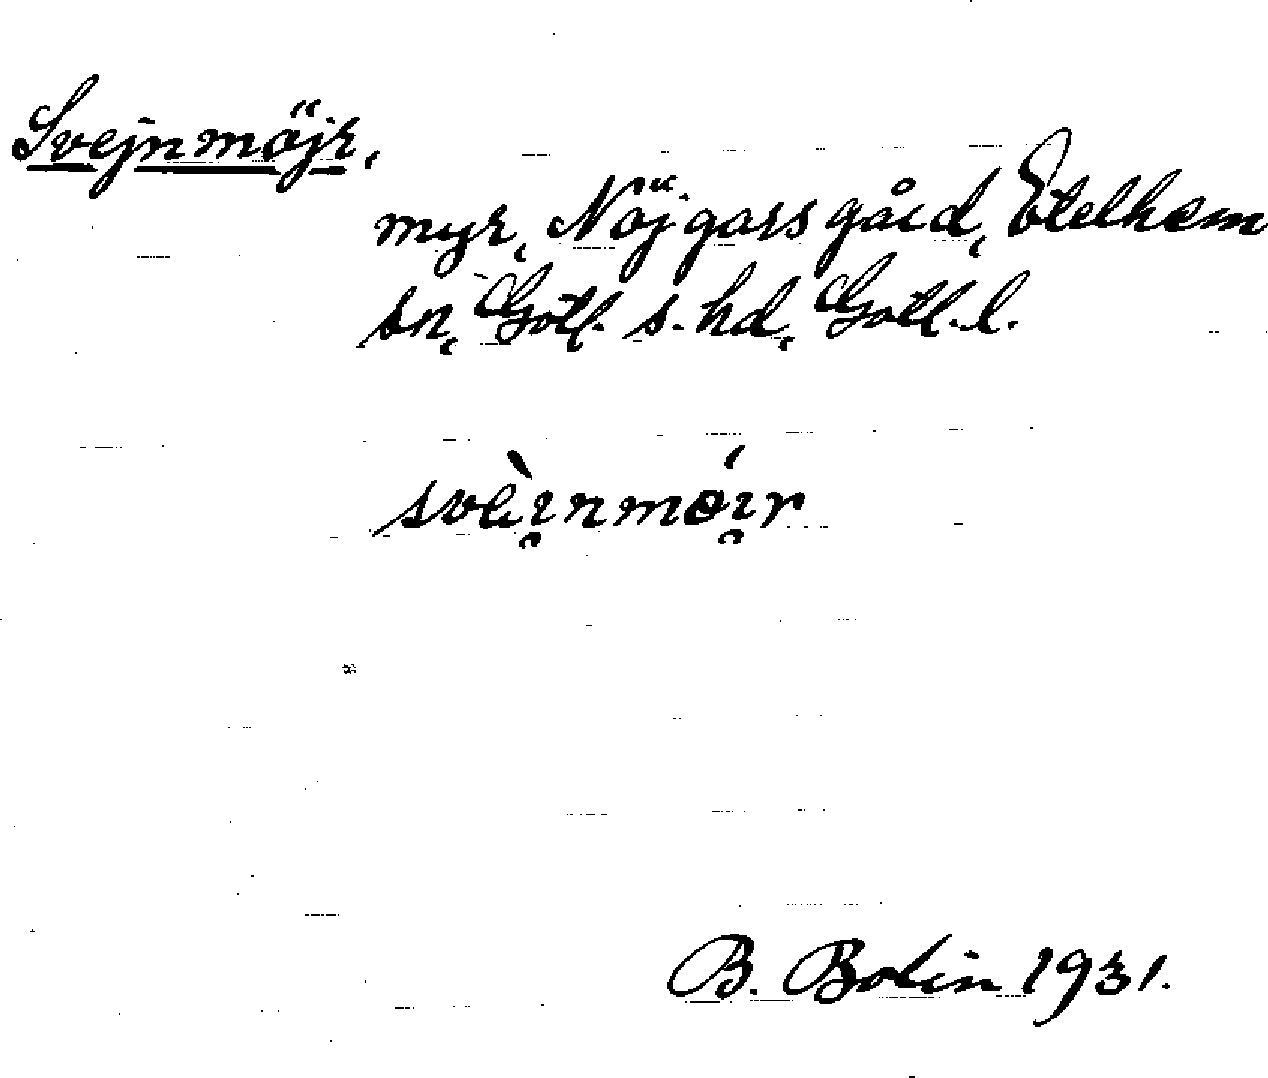 Svejnmöjr,
myr, Nöjgarsgård, Etelhem
sn, Gotl. s. hd, Gotl. l.
svèi̯nmǿi̯r
B. Bolin 1931.